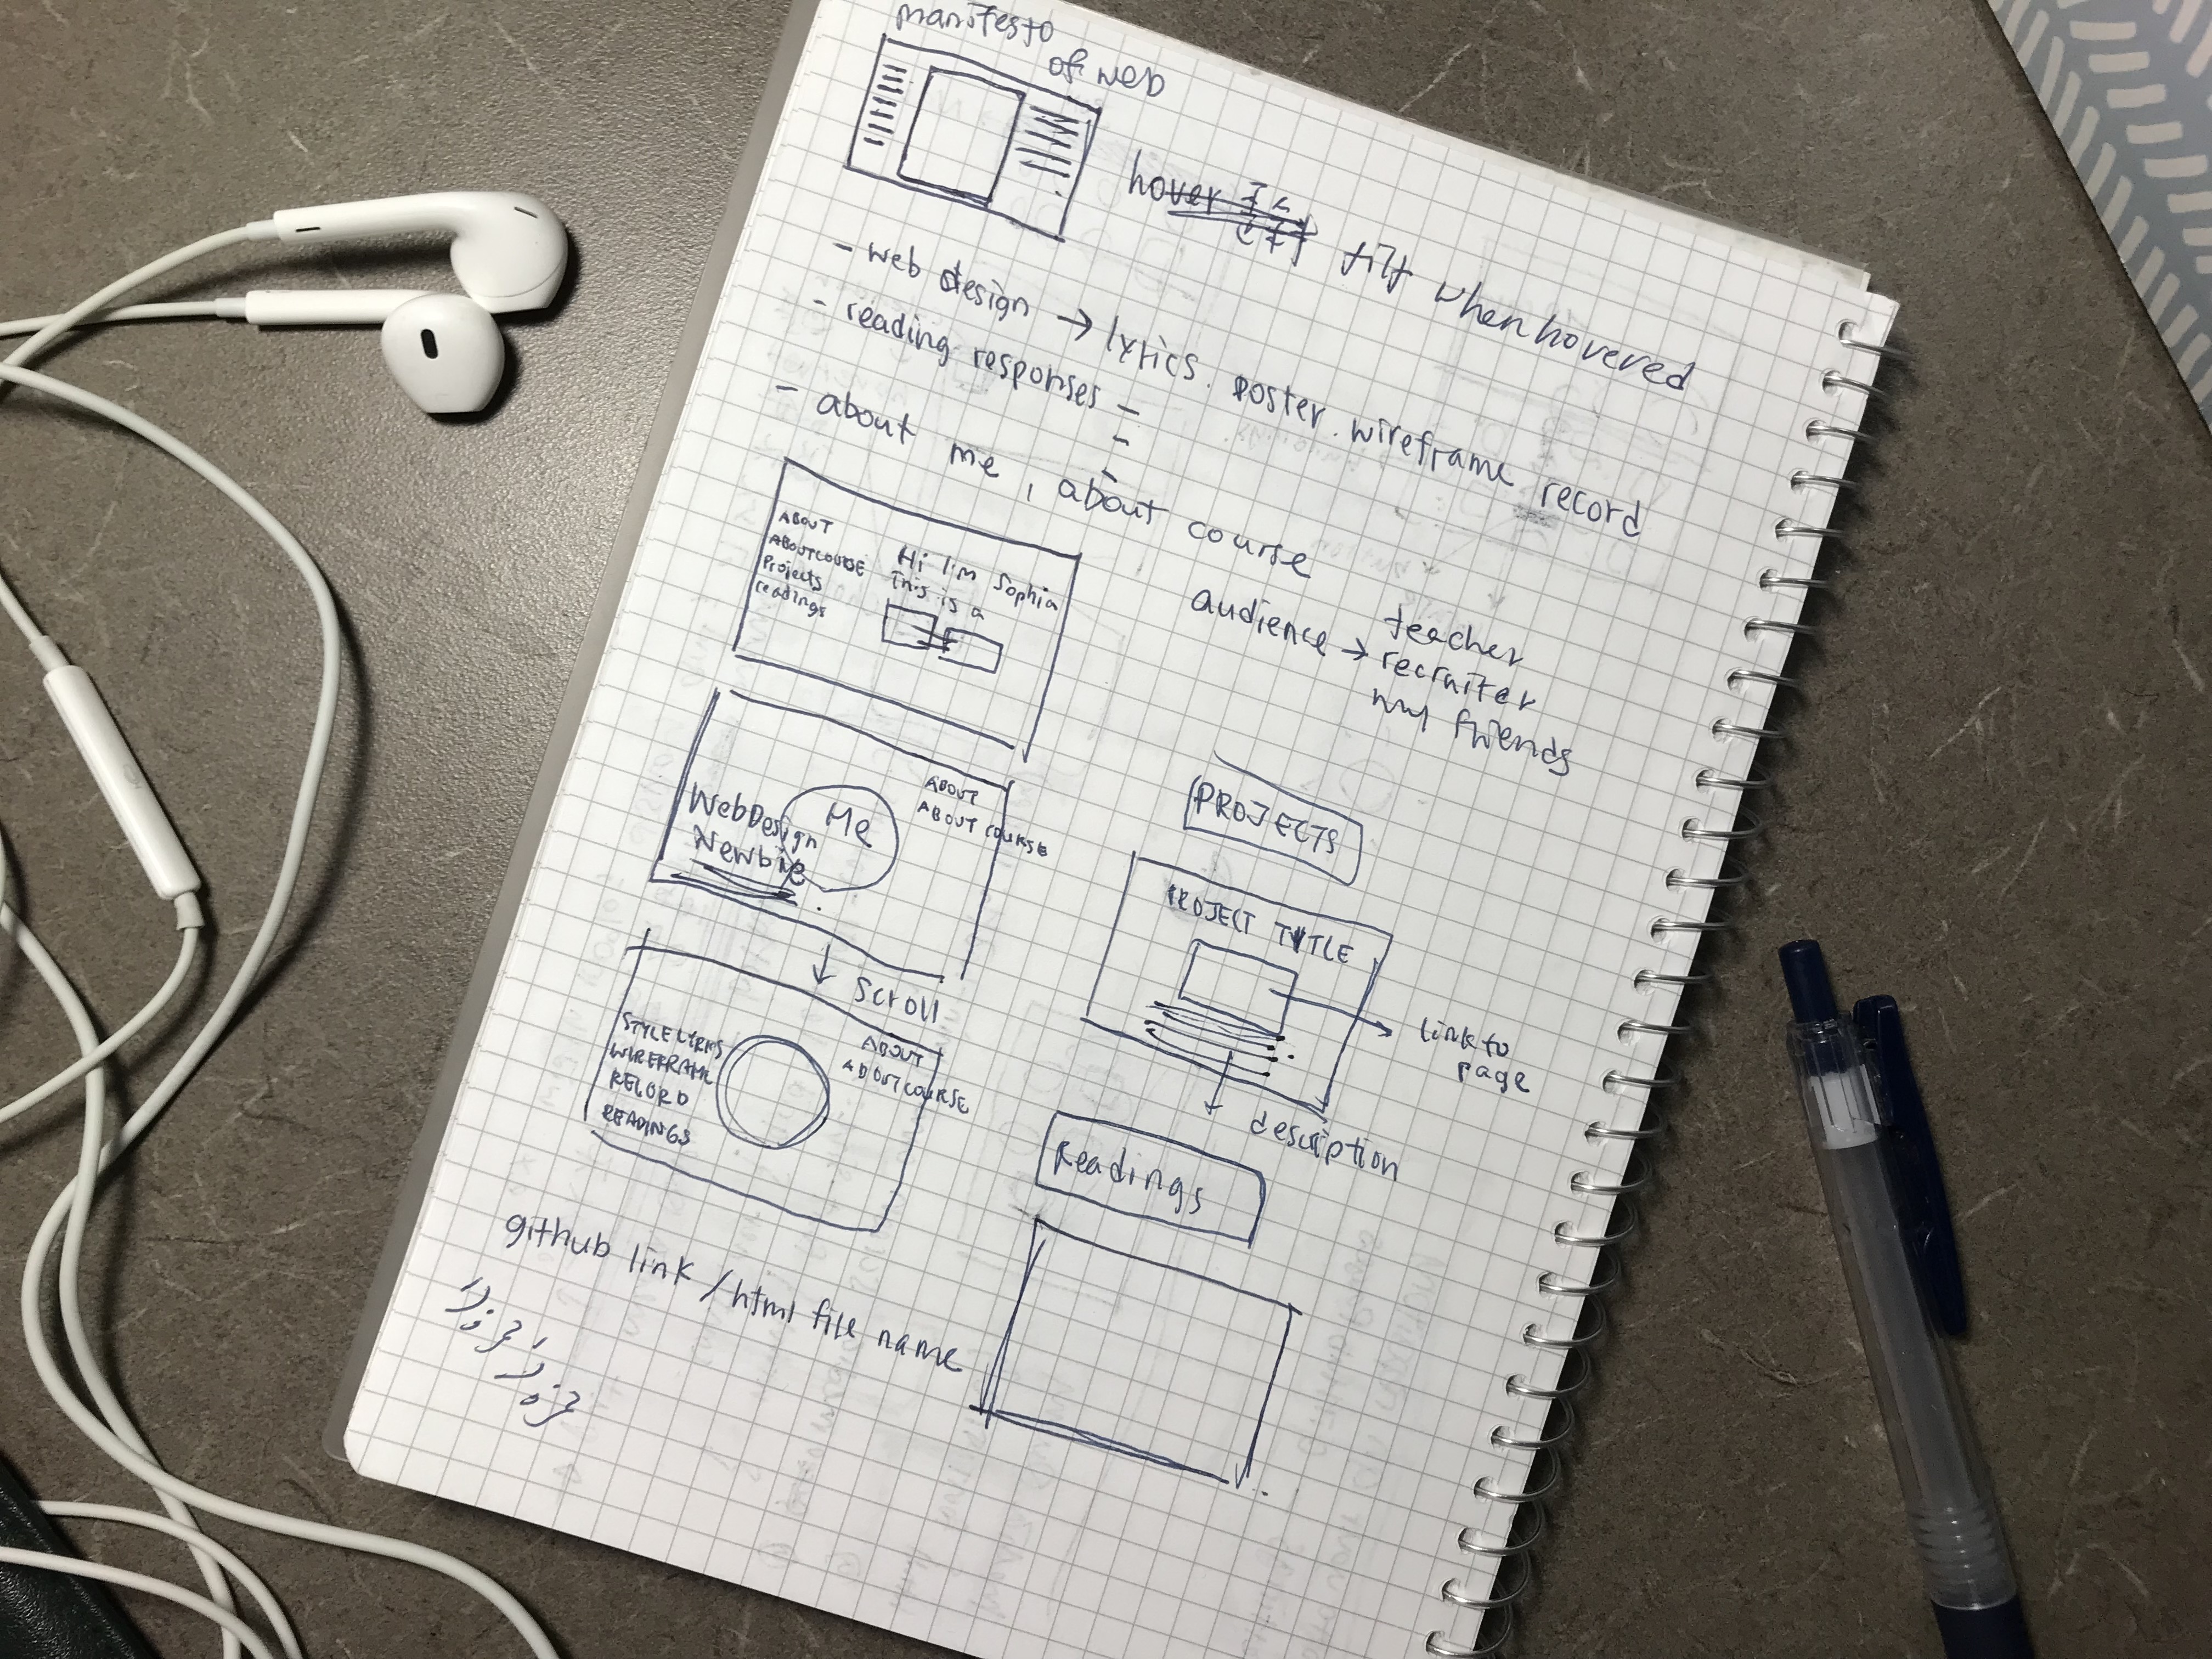 manifesto
of web
hover
tilt when hovered
- web design → lyrics. poster. wireframe record
- reading responses -
-
-
- about me, about course
ABOUT
ABOUTCOURSE
Projects
readings
Hi I'm Sophia
This is a
audience → teacher
recruiter
my friends
WebDesign
Newbie
Me
ABOUT
ABOUT COURSE
↓ scroll
STYLE LYRICS
WIREFRAME
RECORD
READINGS
ABOUT
ABOUT COURSE
PROJECTS
PROJECT TITLE
link to
page
description
Readings
github link / html file name